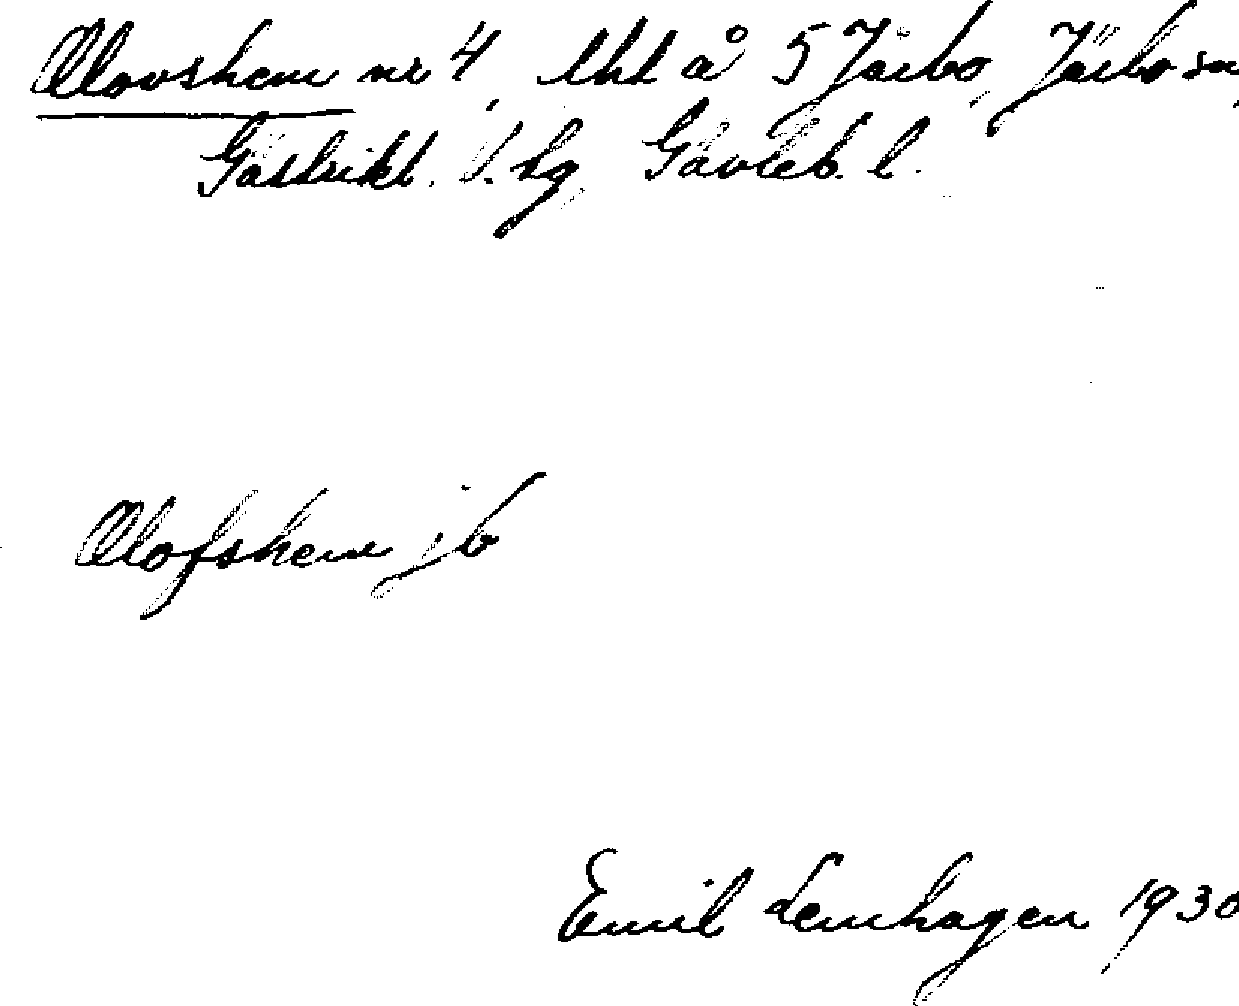 Olovshem nr 4, lht å 5 Järbo, Järbo sn,
Gästrikl. V. hg, Gävleb. l.
Olofshem jb
Emil Lenhagen 1930